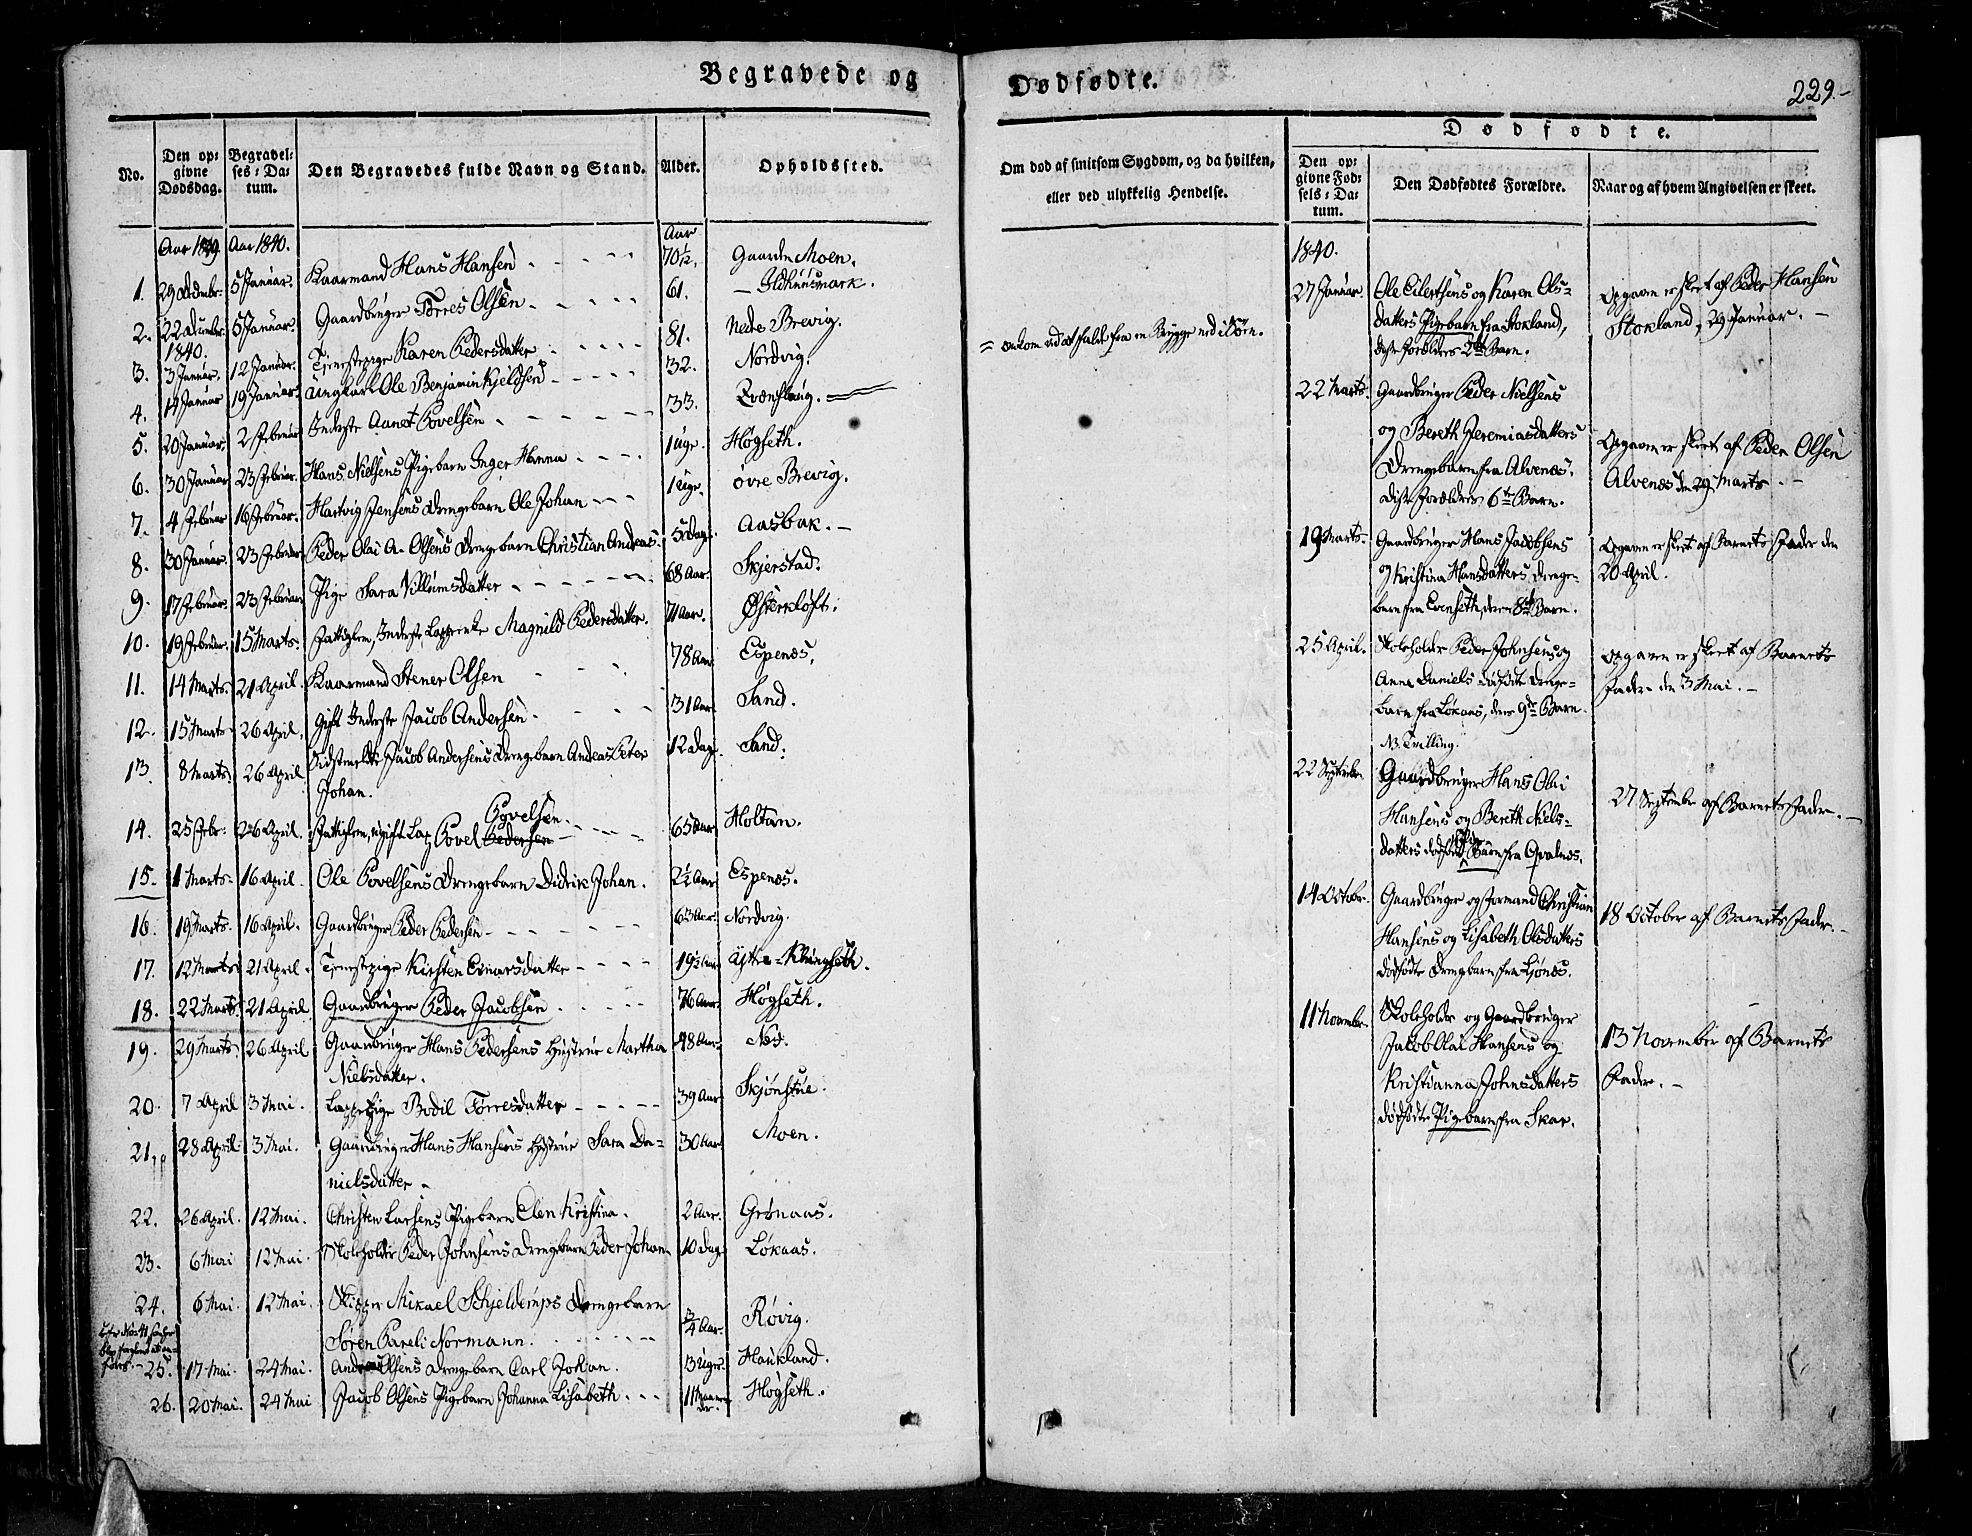 Begravede og Dødfødte.
229.-
No. Den opgivne Dødsdag. Begravelses-Datum. Den Begravedes fulde Navn og Stand. Alder. Opholdssted.
Aar 1839. Aar 1840. Aar
1. 29 Decembr. 5 Januar. Kaarmand Hans Hansen 70 1/2. Gaarden Moen.
2. 22 December 5 Januar. Gaardbruger Torres Olsen 61. Ildhuusmark.
1840.
3. 3 Januar. 12 Januar. Tjenestepige Karen Pedersdatter 81. Nedre Brevig.
4. 14 Januar 19 Januar. Ungkarl Ole Benjamin Kjeldsen 32. Nordvig.
5. 20 Januar. 2 Februar Inderste Aanet Povelsen 33. Evenslaug.
6. 30 Januar 23 Februar. Hans Nielsens Pigebarn Inger Hanna 1 uge. Høgseth.
7. 4 Februar 16 Februar. Hartvig Jensens Drengebarn Ole Johan 1 Uge. øvre Brevig.
8. 30 Januar. 23 Februar Peder Olai A. Olsens Drengebarn Christian Andreas. 5 Dag. Aasbak.
9. 17 Februar. 23 Februar Pige Sara Villumsdatter 68 Aar. Skjerstad.
10. 19 Februar. 15 Marts. Fattiglem, Inderste, Lappenke Magnild Pedersdatter. 71 Aar. Østerkløft.
11. 14 Marts. 21 April. Kaarmand Stener Olsen 78 Aar. Espenæs.
12. 15 Marts 26 April. Gift Inderste Jacob Andersen. 31 Aar. Sand.
13. 8 Marts. 26 April Sidstmeldte Jacob Andersens Drengebarn Andreas Peter
Johan. 12 Dage. Sand.
14. 25 Febr. 26 April. Fattiglem, ugift Lap Povel Pedersen Povelsen. 65 Aar Holtan.
15. 1 Marts. 16 April. Ole Povelsens Drengebarn Didrik Johan. 2 1/2 Aar Espenæs.
16. 19 Marts. 16 April. Gaardbruger Peder Pedersen 63 Aar. Nordvig.
17. 12 Marts 21 April. Tjenestepige Kirsten Enarsdatter 19 1/2 Aar Ytre-Klungseth.
18. 22 Marts. 21 April. Gaardbruger Peder Jacobsen 76 Aar. Høgseth.
19. 29 Marts 26 April Gaardbruger Hans Pedersens Hustrue Martha
Nielsdatter. 48 Aar. Næs.
20. 7 April 3 Mai. Lappepige Bodil Torresdatter 39 Aar. Skjønstue.
21. 28 April 3 Mai. Gaardbruger Hans Hansens Hustrue Sara Da-
nielsdatter 30 Aar Moen.
22. 26 April. 12 Mai. Christen Larsens Pigebarn Elen Kristina. 2 Aar. Grønaas.
23. 6 Mai 12 Mai. Skoleholder Peder Johnsens Drengebarn Peder Johan 10 Dage Løkaas.
24. 6 Mai. 12 Mai. Skipper Mikael Schjeldrups Drengebarn
Søren Pareli Normann. 3/4 Aar. Røvig.
25. 17 Mai. 24 Mai. Andreas Olsens Drengebarn Carl Johan. 3 Uger. Haukland.
26. 20 Mai. 24 Mai Jacob Olsens Pigebarn Johanna Lisabeth. 11 Maaneder. Høgseth.
Om død af smitsom Sygdom, og da hvilken, eller ved ulykkelig Hendelse.
= omkom ved at falde fra en Brygge ned i Søen.
Dødfødte.
Den opgivne Fødsels-Datum. Den Dødfødtes Forældre. Naar og af hvem Angivelsen er skeet.
1840.
27 Januar Ole Eilertsens og Karen Ols-
datters Pigebarn fra Stokland,
disse Forældres 2det Barn.
Opgaven er skeet af Peder Hansen
Stokland, 29 Januar.
22 Marts. Gaardbruger Peder Nielsens
og Bereth Jeremiasdatters
Drengebarn fra Alvenæs,
disse Forældres 6te Barn.
Opgaven er skeet af Peder Olsen
Alvenæs den 29 Marts.
19 Marts. Gaardbruger Hans Jacobsens
og Kristina Hansdatters Drenge-
barn fra Evenseth, deres 8de Barn.
Opgaven er skeet af Barnets Fader den
20 April.
25 April. Skoleholder Peder Johnsens og
Anna Daniels dødfødte Drenge-
barn fra Løkaas, deres 9de Barn.
NB. Tvilling.
Opgaven er skeet af Barnets
Fader den 3 Mai.
22 September Gaardbruger Hans Olai
Hansens og Bereth Niels-
datters dødfødte Pige Barn fra Gvalnæs.
27 September af Barnets Fader.
14 Octobr. Gaardbruger og Formand Christian
Hansens og Lisabeth Olsdatters
dødfødte Drengebarn fra Ljønæs.
18 October af Barnets Fader.
11 Novembr. Skoleholder og Gaardbruger
Jakob Olai Hansens og
Kristianna Johnsdatters
dødfødte Pigebarn fra Skar.
13 November af Barnets
Fader.